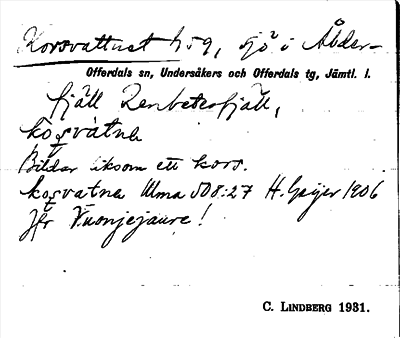 Korsvattnet h 59, sjö i Ålder-
Offerdals sn, Undersåkers och Offerdals tg, Jämtl. l.
fjäll Renbetesfjäll,
kɔșvàtnɐ
Bildar liksom ett kors.
kɔșvatnɐ Ulma 508:27 H. Geijer 1906
Jfr Vuonjejaure!
C. LINDBERG 1931.